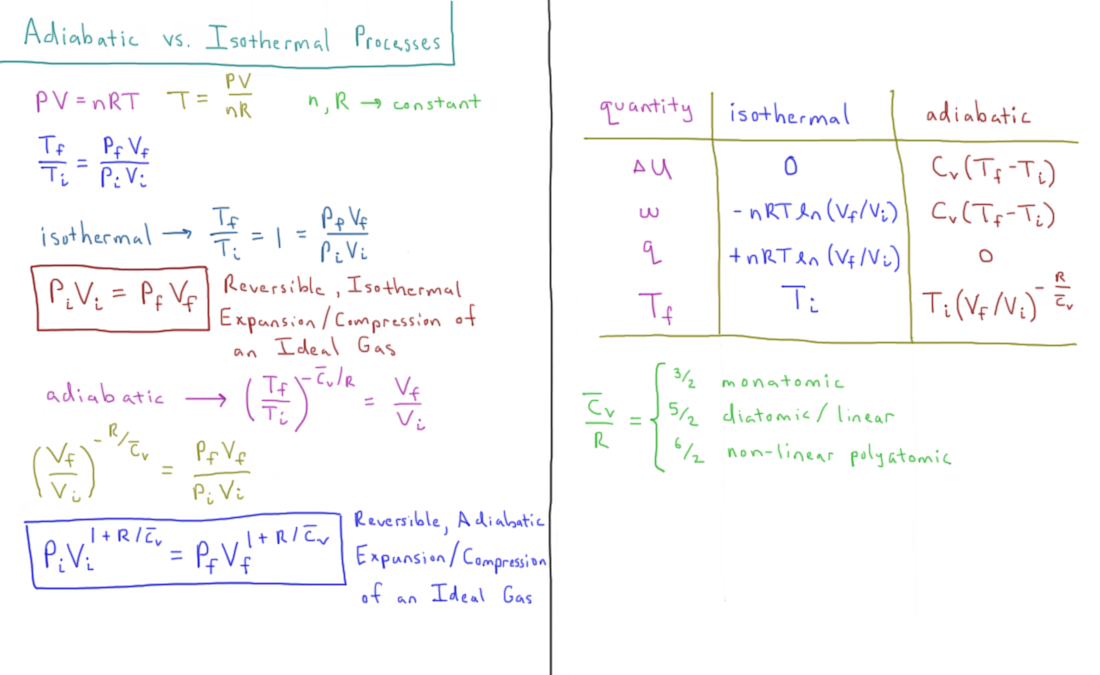 Adiabatic vs. Isothermal Processes
PV = nRT T = PV/nR n, R → constant
T_f/T_i = P_f V_f / P_i V_i
isothermal → T_f/T_i = 1 = P_f V_f / P_i V_i
P_i V_i = P_f V_f Reversible, Isothermal
Expansion/Compression of
an Ideal Gas
adiabatic → (T_f/T_i)^(-C̅_v/R) = V_f/V_i
(V_f/V_i)^(-R/C̅_v) = P_f V_f / P_i V_i
P_i V_i^(1+R/C̅_v) = P_f V_f^(1+R/C̅_v) Reversible, Adiabatic
Expansion/Compression
of an Ideal Gas
quantity isothermal adiabatic
ΔU 0 C_v(T_f-T_i)
w -nRT ln(V_f/V_i) C_v(T_f-T_i)
q +nRT ln(V_f/V_i) 0
T_f T_i T_i(V_f/V_i)^(-R/C̅_v)
C̅_v/R = { 3/2 monatomic
5/2 diatomic/linear
6/2 non-linear polyatomic